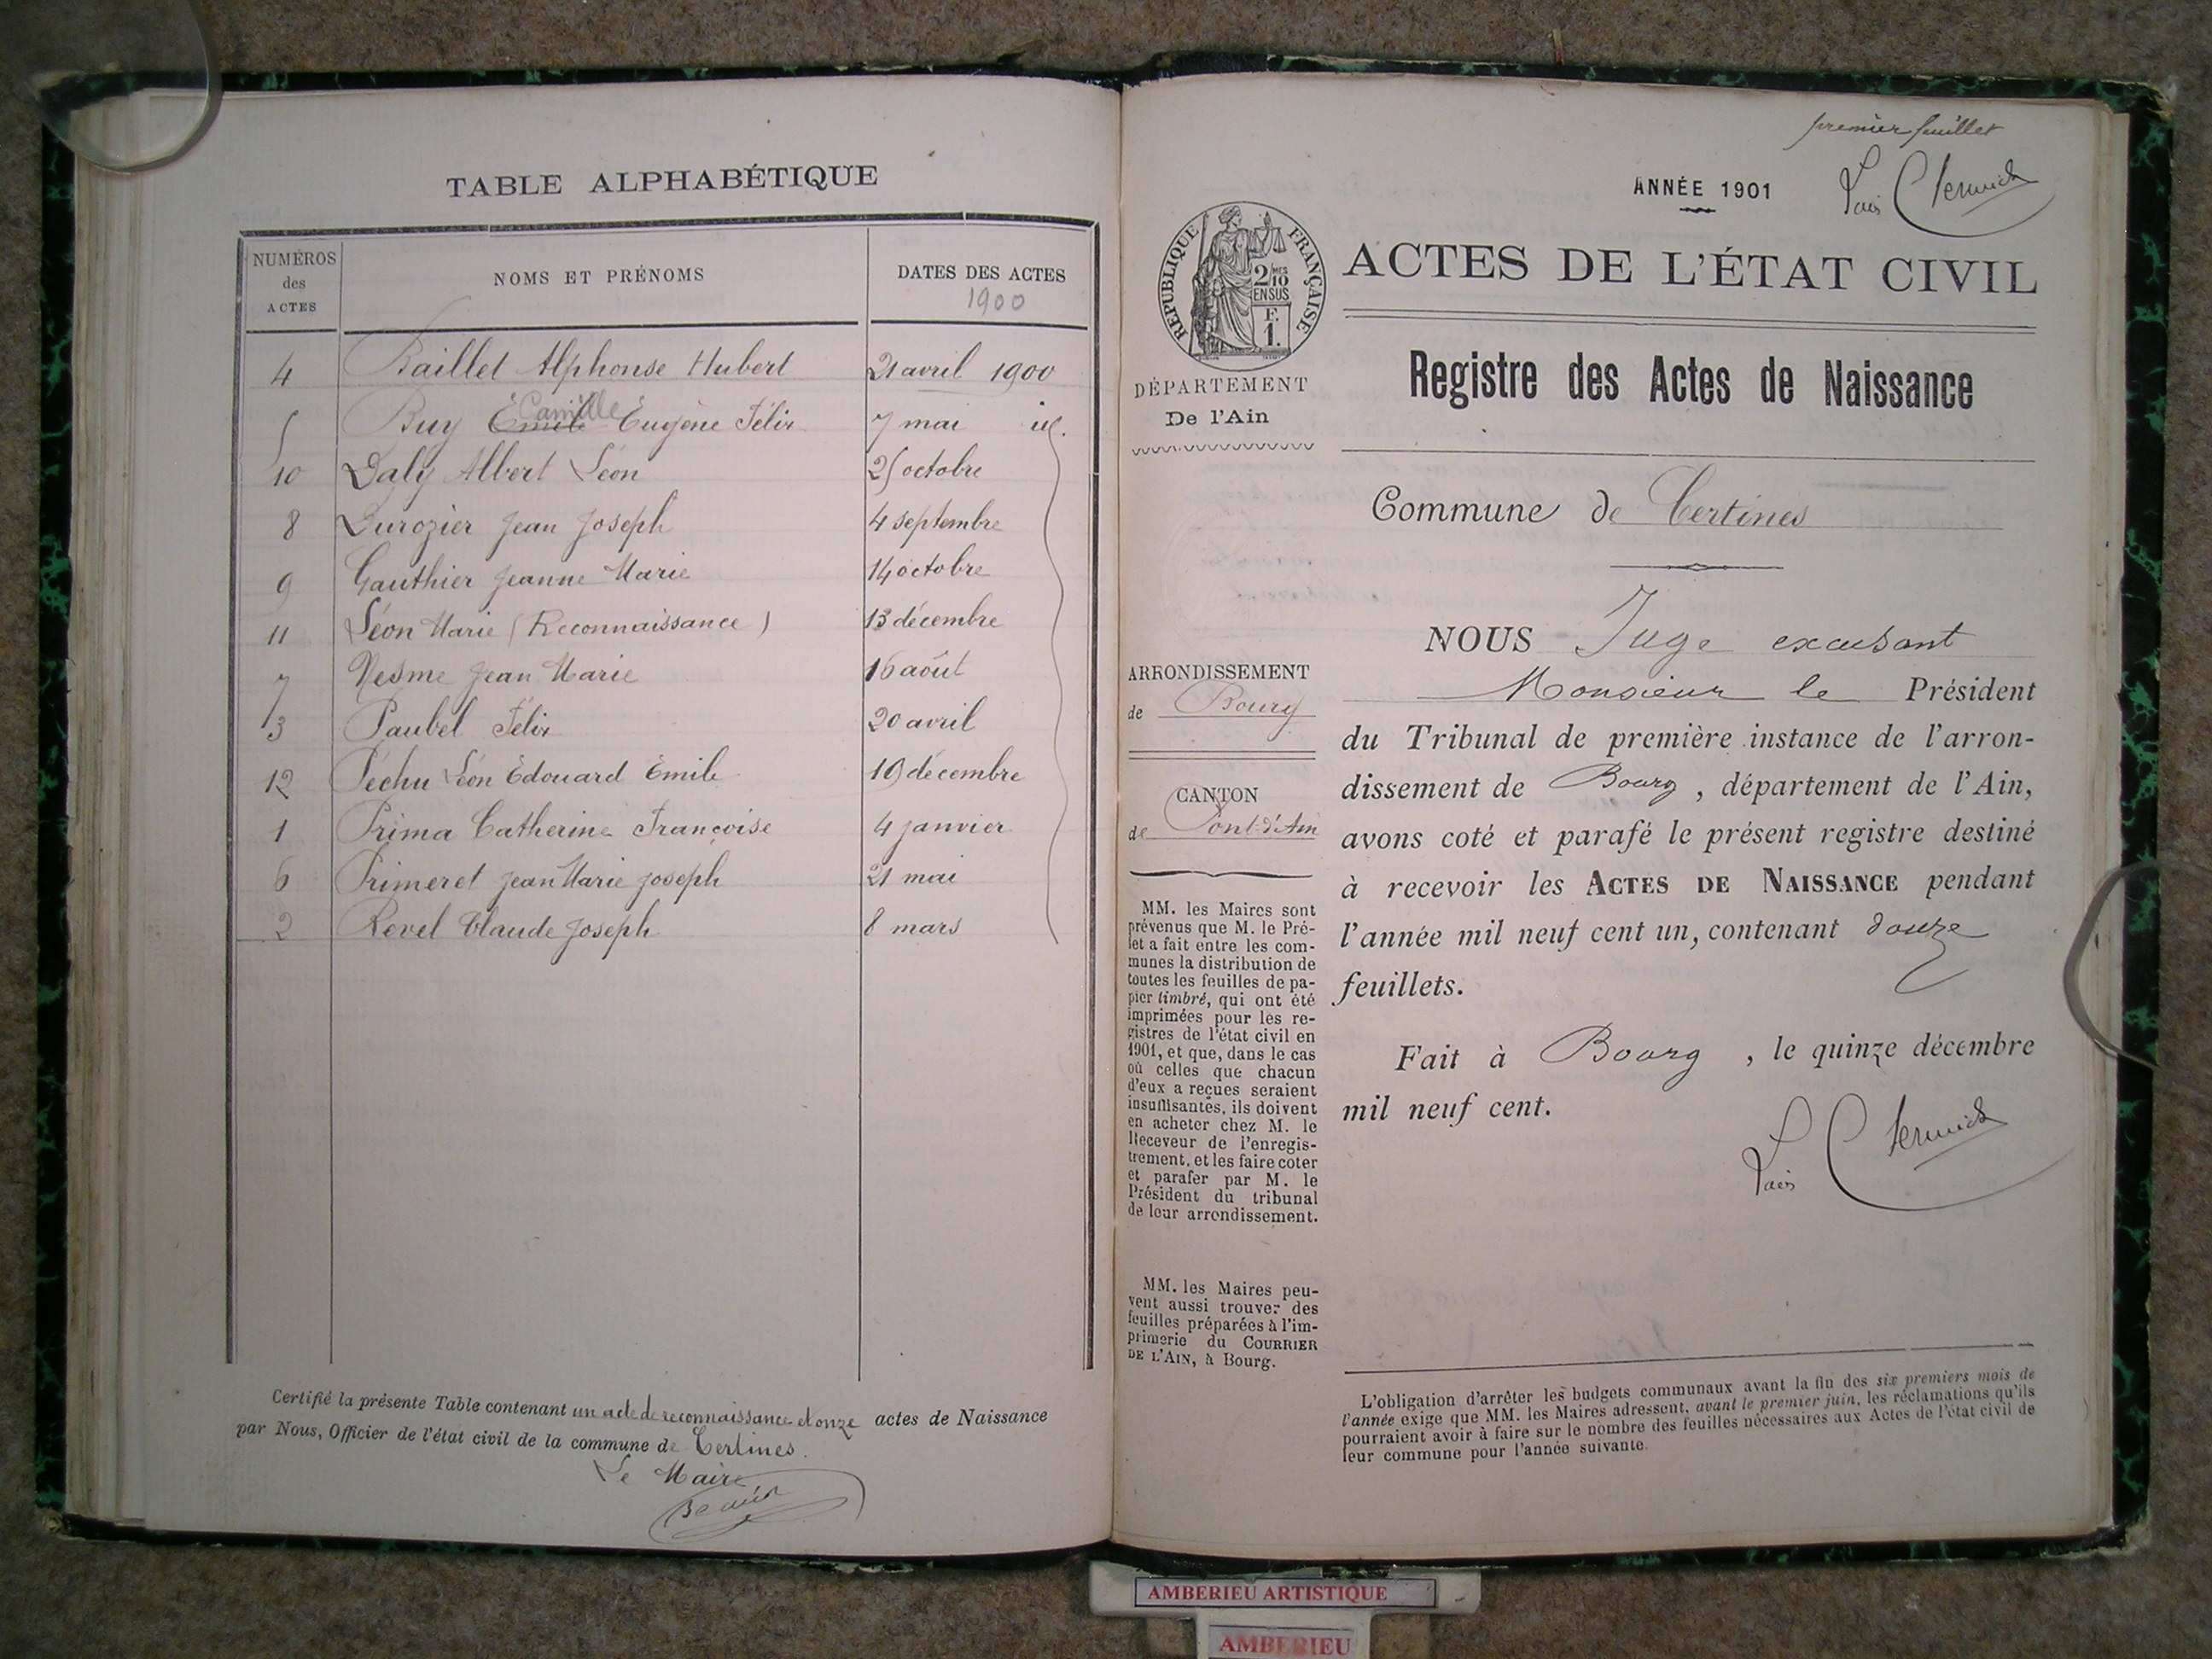 TABLE ALPHABÉTIQUE
NUMÉROS des ACTES
NOMS ET PRÉNOMS
DATES DES ACTES
1900
4 Baillet Alphonse Hubert 21 avril 1900
Camille
5 Buy Emile Eugène Félix 7 mai id.
10 Daly Albert Léon 25 octobre
8 Durozier Jean Joseph 4 septembre
9 Gauthier Jeanne Marie 14 octobre
11 Léon Marie (Reconnaissance) 13 décembre
7 Nesme Jean Marie 16 août
3 Paubel Félix 20 avril
12 Péchu Léon Édouard Émile 19 décembre
1 Prima Catherine Françoise 4 janvier
6 Primeret Jean Marie Joseph 21 mai
2 Revel Claude Joseph 8 mars
Certifié la présente Table contenant un acte de reconnaissance et onze actes de Naissance
par Nous, Officier de l'état civil de la commune de Certines.
Le Maire
premier feuillet
ANNÉE 1901
RÉPUBLIQUE FRANÇAISE
2/10 MES
EN SUS
F.
1.
ACTES DE L'ÉTAT CIVIL
DÉPARTEMENT
De l'Ain
Registre des Actes de Naissance
Commune de Certines
NOUS Juge excusant
Monsieur le Président
du Tribunal de première instance de l'arron-
dissement de Bourg, département de l'Ain,
avons coté et parafé le présent registre destiné
à recevoir les ACTES DE NAISSANCE pendant
l'année mil neuf cent un, contenant douze
feuillets.
Fait à Bourg, le quinze décembre
mil neuf cent.
ARRONDISSEMENT
de Bourg
CANTON
de Pont-d'Ain
MM. les Maires sont
prévenus que M. le Pré-
fet a fait entre les com-
munes la distribution de
toutes les feuilles de pa-
pier timbré, qui ont été
imprimées pour les re-
gistres de l'état civil en
1901, et que, dans le cas
où celles que chacun
d'eux a reçues seraient
insuffisantes, ils doivent
en acheter chez M. le
Receveur de l'enregis-
trement, et les faire coter
et parafer par M. le
Président du tribunal
de leur arrondissement.
MM. les Maires peu-
vent aussi trouver des
feuilles préparées à l'im-
primerie du COURRIER
DE L'AIN, à Bourg.
L'obligation d'arrêter les budgets communaux avant la fin des six premiers mois de
l'année exige que MM. les Maires adressent, avant le premier juin, les réclamations qu'ils
pourraient avoir à faire sur le nombre des feuilles nécessaires aux Actes de l'état civil de
leur commune pour l'année suivante.
AMBERIEU ARTISTIQUE
AMBERIEU